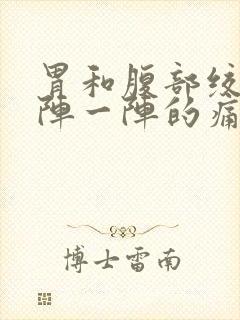 胃和腹部绞
陣一陣的痛
博士雷南